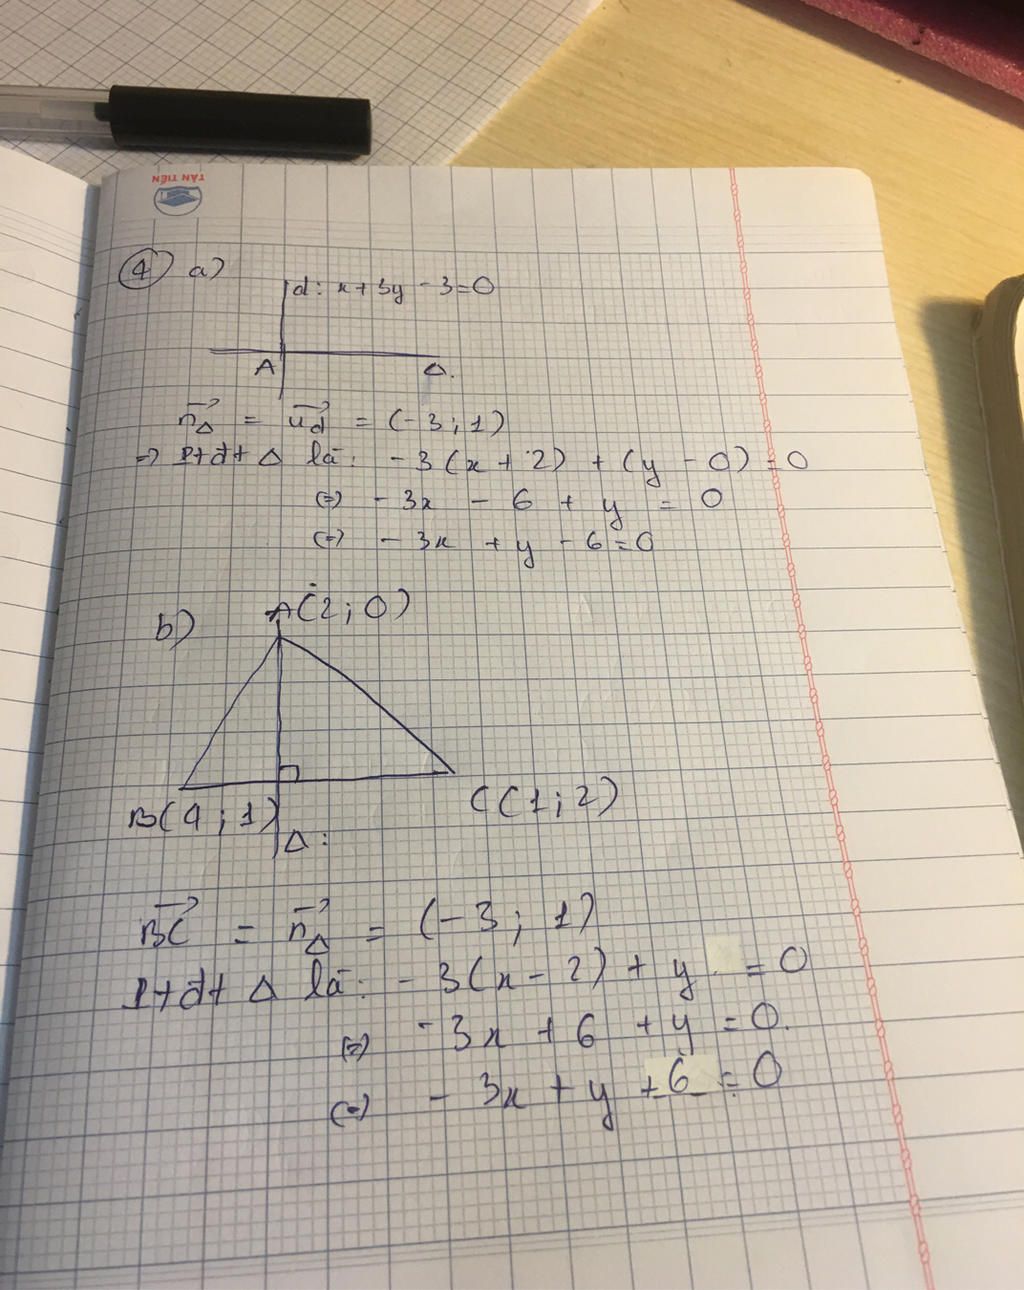 TÂN TIẾN
4 a)
d: x + 3y - 3 = 0
A Δ.
n⃗Δ = u⃗d = (-3; 1)
=> Ptđt Δ là: -3(x + 2) + (y - 0) = 0
(=) -3x - 6 + y = 0
(=) -3x + y - 6 = 0
b) A(2; 0)
B(4; 1) C(1; 2)
Δ:
BC⃗ = n⃗Δ = (-3; 1)
Ptđt Δ là: -3(x - 2) + y = 0
(=) -3x + 6 + y = 0.
(=) -3x + y + 6 = 0